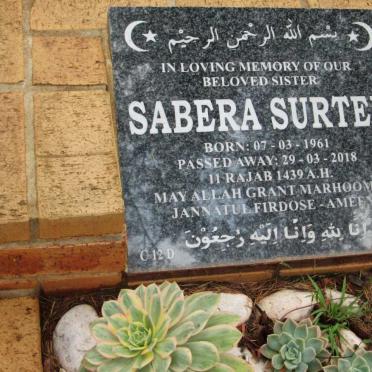 بسم الله الرحمن الرحيم
IN LOVING MEMORY OF OUR
BELOVED SISTER
SABERA SURTE
BORN: 07 - 03 - 1961
PASSED AWAY: 29 - 03 - 2018
11 RAJAB 1439 A.H.
MAY ALLAH GRANT MARHOOM
JANNATUL FIRDOSE - AMEEN
انا لله وانا اليه رجعون
C 12 D